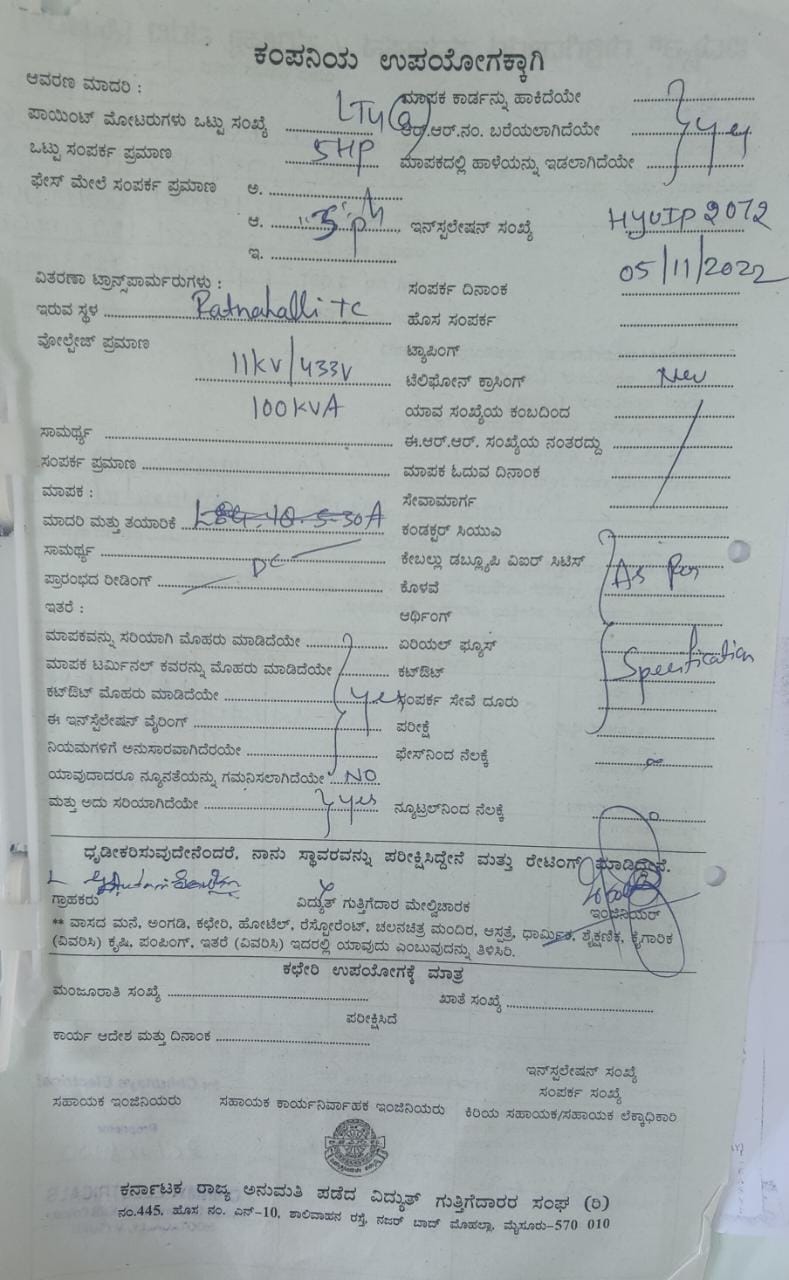 ಕಂಪನಿಯ ಉಪಯೋಗಕ್ಕಾಗಿ
ಆವರಣ ಮಾದರಿ :
ಮಾಪಕ ಕಾರ್ಡನ್ನು ಹಾಕಿದೆಯೇ
ಪಾಯಿಂಟ್ ಮೋಟರುಗಳು ಒಟ್ಟು ಸಂಖ್ಯೆ LT4(a)
ಆರ್.ಆರ್.ನಂ. ಬರೆಯಲಾಗಿದೆಯೇ yes
ಒಟ್ಟು ಸಂಪರ್ಕ ಪ್ರಮಾಣ 5HP
ಮಾಪಕದಲ್ಲಿ ಹಾಳೆಯನ್ನು ಇಡಲಾಗಿದೆಯೇ
ಫೇಸ್ ಮೇಲೆ ಸಂಪರ್ಕ ಪ್ರಮಾಣ ಅ.
ಆ. "3" ph
ಇನ್‌ಸ್ಪಲೇಷನ್ ಸಂಖ್ಯೆ HYUIP 2072
ಇ.
ವಿತರಣಾ ಟ್ರಾನ್ಸ್‌ಪಾರ್ಮರುಗಳು :
ಸಂಪರ್ಕ ದಿನಾಂಕ 05/11/2022
ಇರುವ ಸ್ಥಳ Ratnahalli TC
ಹೊಸ ಸಂಪರ್ಕ
ವೋಲ್ಟೇಜ್ ಪ್ರಮಾಣ 11KV/433V
ಟ್ಯಾಪಿಂಗ್
ಟೆಲಿಫೋನ್ ಕ್ರಾಸಿಂಗ್ New
100KVA
ಯಾವ ಸಂಖ್ಯೆಯ ಕಂಬದಿಂದ
ಸಾಮರ್ಥ್ಯ
ಈ.ಆರ್.ಆರ್. ಸಂಖ್ಯೆಯ ನಂತರದ್ದು
ಸಂಪರ್ಕ ಪ್ರಮಾಣ
ಮಾಪಕ ಓದುವ ದಿನಾಂಕ
ಮಾಪಕ :
ಸೇವಾಮಾರ್ಗ
ಮಾದರಿ ಮತ್ತು ತಯಾರಿಕೆ
ಕಂಡಕ್ಟರ್ ಸಿಯುಎ
ಸಾಮರ್ಥ್ಯ DC
ಕೇಬಲ್ಲು ಡಬ್ಲ್ಯೂಪಿ ವಿಐರ್ ಸಿಟಿಸ್ As Per
ಪ್ರಾರಂಭದ ರೀಡಿಂಗ್
ಕೊಳವೆ
ಇತರೆ :
ಆರ್ಥಿಂಗ್
ಮಾಪಕವನ್ನು ಸರಿಯಾಗಿ ಮೊಹರು ಮಾಡಿದೆಯೇ
ಏರಿಯಲ್ ಫ್ಯೂಸ್ Specification
ಮಾಪಕ ಟರ್ಮಿನಲ್ ಕವರನ್ನು ಮೊಹರು ಮಾಡಿದೆಯೇ
ಕಟ್‌ಔಟ್
ಕಟ್‌ಔಟ್ ಮೊಹರು ಮಾಡಿದೆಯೇ yes
ಸಂಪರ್ಕ ಸೇವೆ ದೂರು
ಈ ಇನ್‌ಸ್ಟೆಲೇಷನ್ ವೈರಿಂಗ್
ಪರೀಕ್ಷೆ
ನಿಯಮಗಳಿಗೆ ಅನುಸಾರವಾಗಿದೆರಯೇ
ಫೇಸ್‌ನಿಂದ ನೆಲಕ್ಕೆ
ಯಾವುದಾದರೂ ನ್ಯೂನತೆಯನ್ನು ಗಮನಿಸಲಾಗಿದೆಯೇ NO
ಮತ್ತು ಅದು ಸರಿಯಾಗಿದೆಯೇ yes
ನ್ಯೂಟ್ರಲ್‌ನಿಂದ ನೆಲಕ್ಕೆ
ಧೃಡೀಕರಿಸುವುದೇನೆಂದರೆ, ನಾನು ಸ್ಥಾವರವನ್ನು ಪರೀಕ್ಷಿಸಿದ್ದೇನೆ ಮತ್ತು ರೇಟಿಂಗ್ ಮಾಡಿದ್ದೇನೆ.
ಗ್ರಾಹಕರು ವಿದ್ಯುತ್ ಗುತ್ತಿಗೆದಾರ ಮೇಲ್ವಿಚಾರಕ ಇಂಜಿನಿಯರ್
** ವಾಸದ ಮನೆ, ಅಂಗಡಿ, ಕಛೇರಿ, ಹೋಟೆಲ್, ರೆಸ್ಟೋರೆಂಟ್, ಚಲನಚಿತ್ರ ಮಂದಿರ, ಆಸ್ಪತ್ರೆ, ಧಾರ್ಮಿಕ, ಶೈಕ್ಷಣಿಕ, ಕೈಗಾರಿಕ
(ವಿವರಿಸಿ) ಕೃಷಿ, ಪಂಪಿಂಗ್, ಇತರೆ (ವಿವರಿಸಿ) ಇದರಲ್ಲಿ ಯಾವುದು ಎಂಬುವುದನ್ನು ತಿಳಿಸಿರಿ.
ಕಛೇರಿ ಉಪಯೋಗಕ್ಕೆ ಮಾತ್ರ
ಮಂಜೂರಾತಿ ಸಂಖ್ಯೆ ಖಾತೆ ಸಂಖ್ಯೆ
ಪರೀಕ್ಷಿಸಿದೆ
ಕಾರ್ಯ ಆದೇಶ ಮತ್ತು ದಿನಾಂಕ
ಇನ್‌ಸ್ಪಲೇಷನ್ ಸಂಖ್ಯೆ
ಸಂಪರ್ಕ ಸಂಖ್ಯೆ
ಸಹಾಯಕ ಇಂಜಿನಿಯರು ಸಹಾಯಕ ಕಾರ್ಯನಿರ್ವಾಹಕ ಇಂಜಿನಿಯರು ಕಿರಿಯ ಸಹಾಯಕ/ಸಹಾಯಕ ಲೆಕ್ಕಾಧಿಕಾರಿ
ಕರ್ನಾಟಕ ರಾಜ್ಯ ಅನುಮತಿ ಪಡೆದ ವಿದ್ಯುತ್ ಗುತ್ತಿಗೆದಾರರ ಸಂಘ (ರಿ)
ನಂ.445, ಹೊಸ ನಂ. ಎನ್-10, ಶಾಲಿವಾಹನ ರಸ್ತೆ, ನಜರ್ ಬಾದ್ ಮೊಹಲ್ಲಾ, ಮೈಸೂರು-570 010